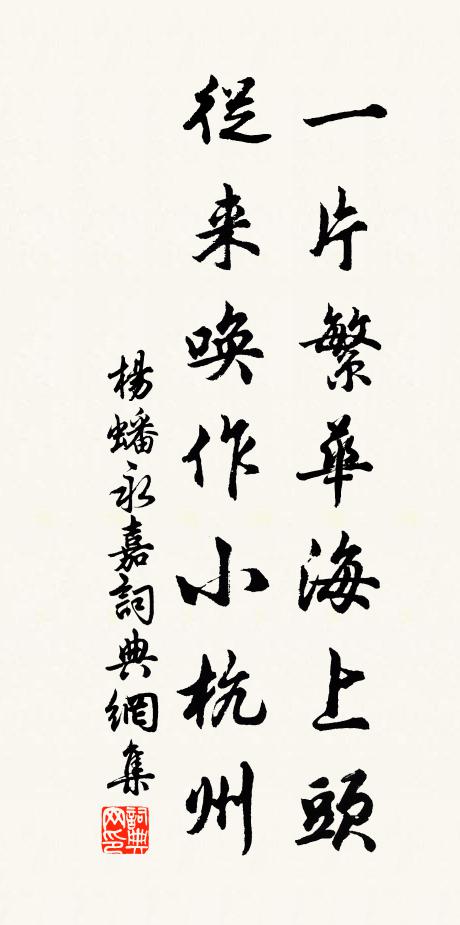 一片繁華海上頭
從来喚作小杭州
楊蟠永嘉詞典網集
詞典网印